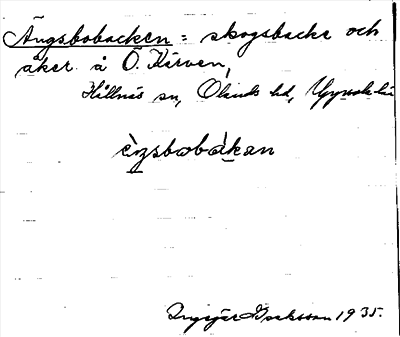 Ängsbobacken = skogsbacke och
åker å Ö. Kärven,
Hållnäs sn, Olands hd, Uppsala län
èŋsbobàkan
Ingegär Isaksson 1935.